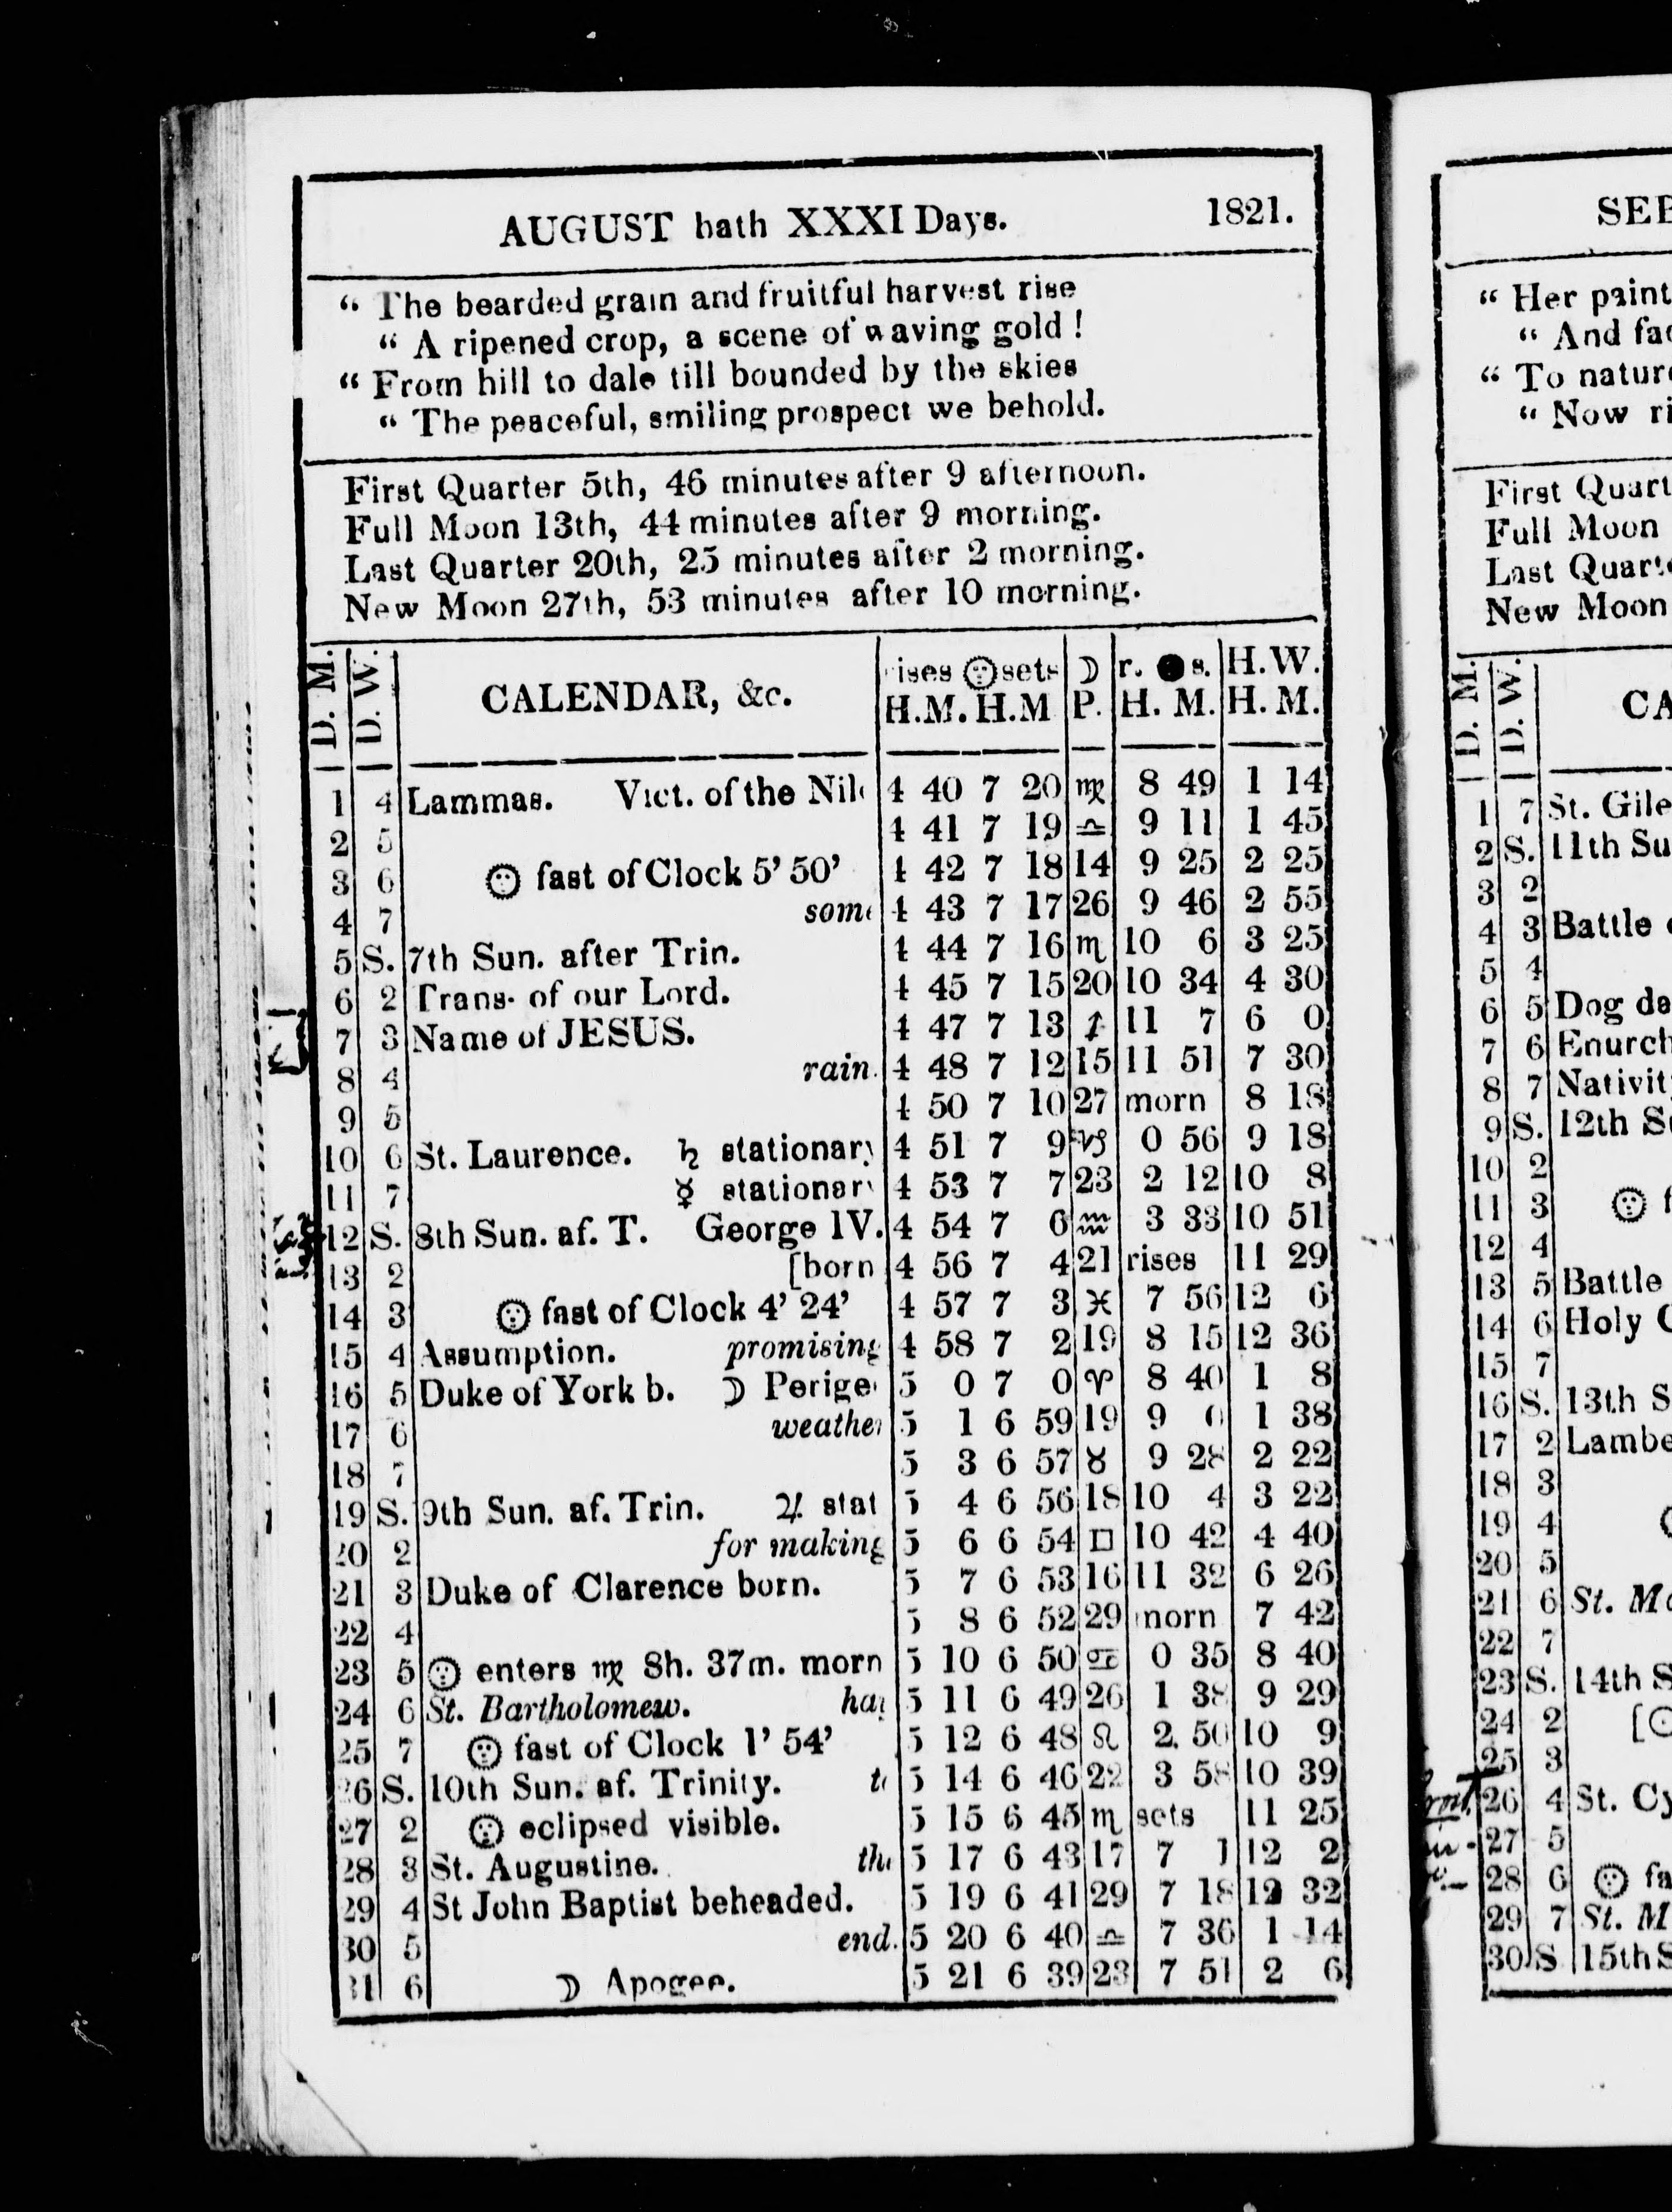 AUGUST hath XXXI Days. 1821.
“ The bearded grain and fruitful harvest rise
“ A ripened crop, a scene of waving gold !
“ From hill to dale till bounded by the skies
“ The peaceful, smiling prospect we behold.
First Quarter 5th, 46 minutes after 9 afternoon.
Full Moon 13th, 44 minutes after 9 morning.
Last Quarter 20th, 25 minutes after 2 morning.
New Moon 27th, 53 minutes after 10 morning.
D. M. D. W. CALENDAR, &c. rises ☉ sets ☽ r. ● s. H.W.
H.M. H.M P. H. M. H. M.
1 4 Lammas. Vict. of the Nile 4 40 7 20 ♍ 8 49 1 14
2 5 4 41 7 19 ♎ 9 11 1 45
3 6 ☉ fast of Clock 5’ 50’ 4 42 7 18 14 9 25 2 25
4 7 some 4 43 7 17 26 9 46 2 55
5 S. 7th Sun. after Trin. 4 44 7 16 ♏ 10 6 3 25
6 2 Trans. of our Lord. 4 45 7 15 20 10 34 4 30
7 3 Name of JESUS. 4 47 7 13 ♐ 11 7 6 0
8 4 rain. 4 48 7 12 15 11 51 7 30
9 5 4 50 7 10 27 morn 8 18
10 6 St. Laurence. ♄ stationary 4 51 7 9 ♑ 0 56 9 18
11 7 ☿ stationary 4 53 7 7 23 2 12 10 8
12 S. 8th Sun. af. T. George IV. 4 54 7 6 ♒ 3 33 10 51
13 2 [born 4 56 7 4 21 rises 11 29
14 3 ☉ fast of Clock 4’ 24’ 4 57 7 3 ♓ 7 56 12 6
15 4 Assumption. promising 4 58 7 2 19 8 15 12 36
16 5 Duke of York b. ☽ Perige 5 0 7 0 ♈ 8 40 1 8
17 6 weather 5 1 6 59 19 9 0 1 38
18 7 5 3 6 57 ♉ 9 28 2 22
19 S. 9th Sun. af. Trin. ♃ stat 5 4 6 56 18 10 4 3 22
20 2 for making 5 6 6 54 □ 10 42 4 40
21 3 Duke of Clarence born. 5 7 6 53 16 11 32 6 26
22 4 5 8 6 52 29 morn 7 42
23 5 ☉ enters ♍ 8h. 37m. morn 5 10 6 50 ♋ 0 35 8 40
24 6 St. Bartholomew. hay 5 11 6 49 26 1 38 9 29
25 7 ☉ fast of Clock 1’ 54’ 5 12 6 48 ♌ 2 50 10 9
26 S. 10th Sun. af. Trinity. t 5 14 6 46 22 3 58 10 39
27 2 ☉ eclipsed visible. 5 15 6 45 ♏ sets 11 25
28 3 St. Augustine. the 5 17 6 43 17 7 1 12 2
29 4 St John Baptist beheaded. 5 19 6 41 29 7 18 12 32
30 5 end. 5 20 6 40 ♎ 7 36 1 14
31 6 ☽ Apogee. 5 21 6 39 23 7 51 2 6
SEP
“ Her paint
“ And fad
“ To nature
“ Now ri
First Quart
Full Moon
Last Quarte
New Moon
D. M. D. W. CA
1 7 St. Gile
2 S. 11th Su
3 2
4 3 Battle
5 4
6 5 Dog da
7 6 Enurch
8 7 Nativit
9 S. 12th S
10 2
11 3 ☉ f
12 4
13 5 Battle
14 6 Holy C
15 7
16 S. 13th S
17 2 Lambe
18 3
19 4
20 5
21 6 St. Ma
22 7
23 S. 14th S
24 2 [☉
25 3
26 4 St. Cy
27 5
28 6 ☉ fa
29 7 St. M
30 S 15th S